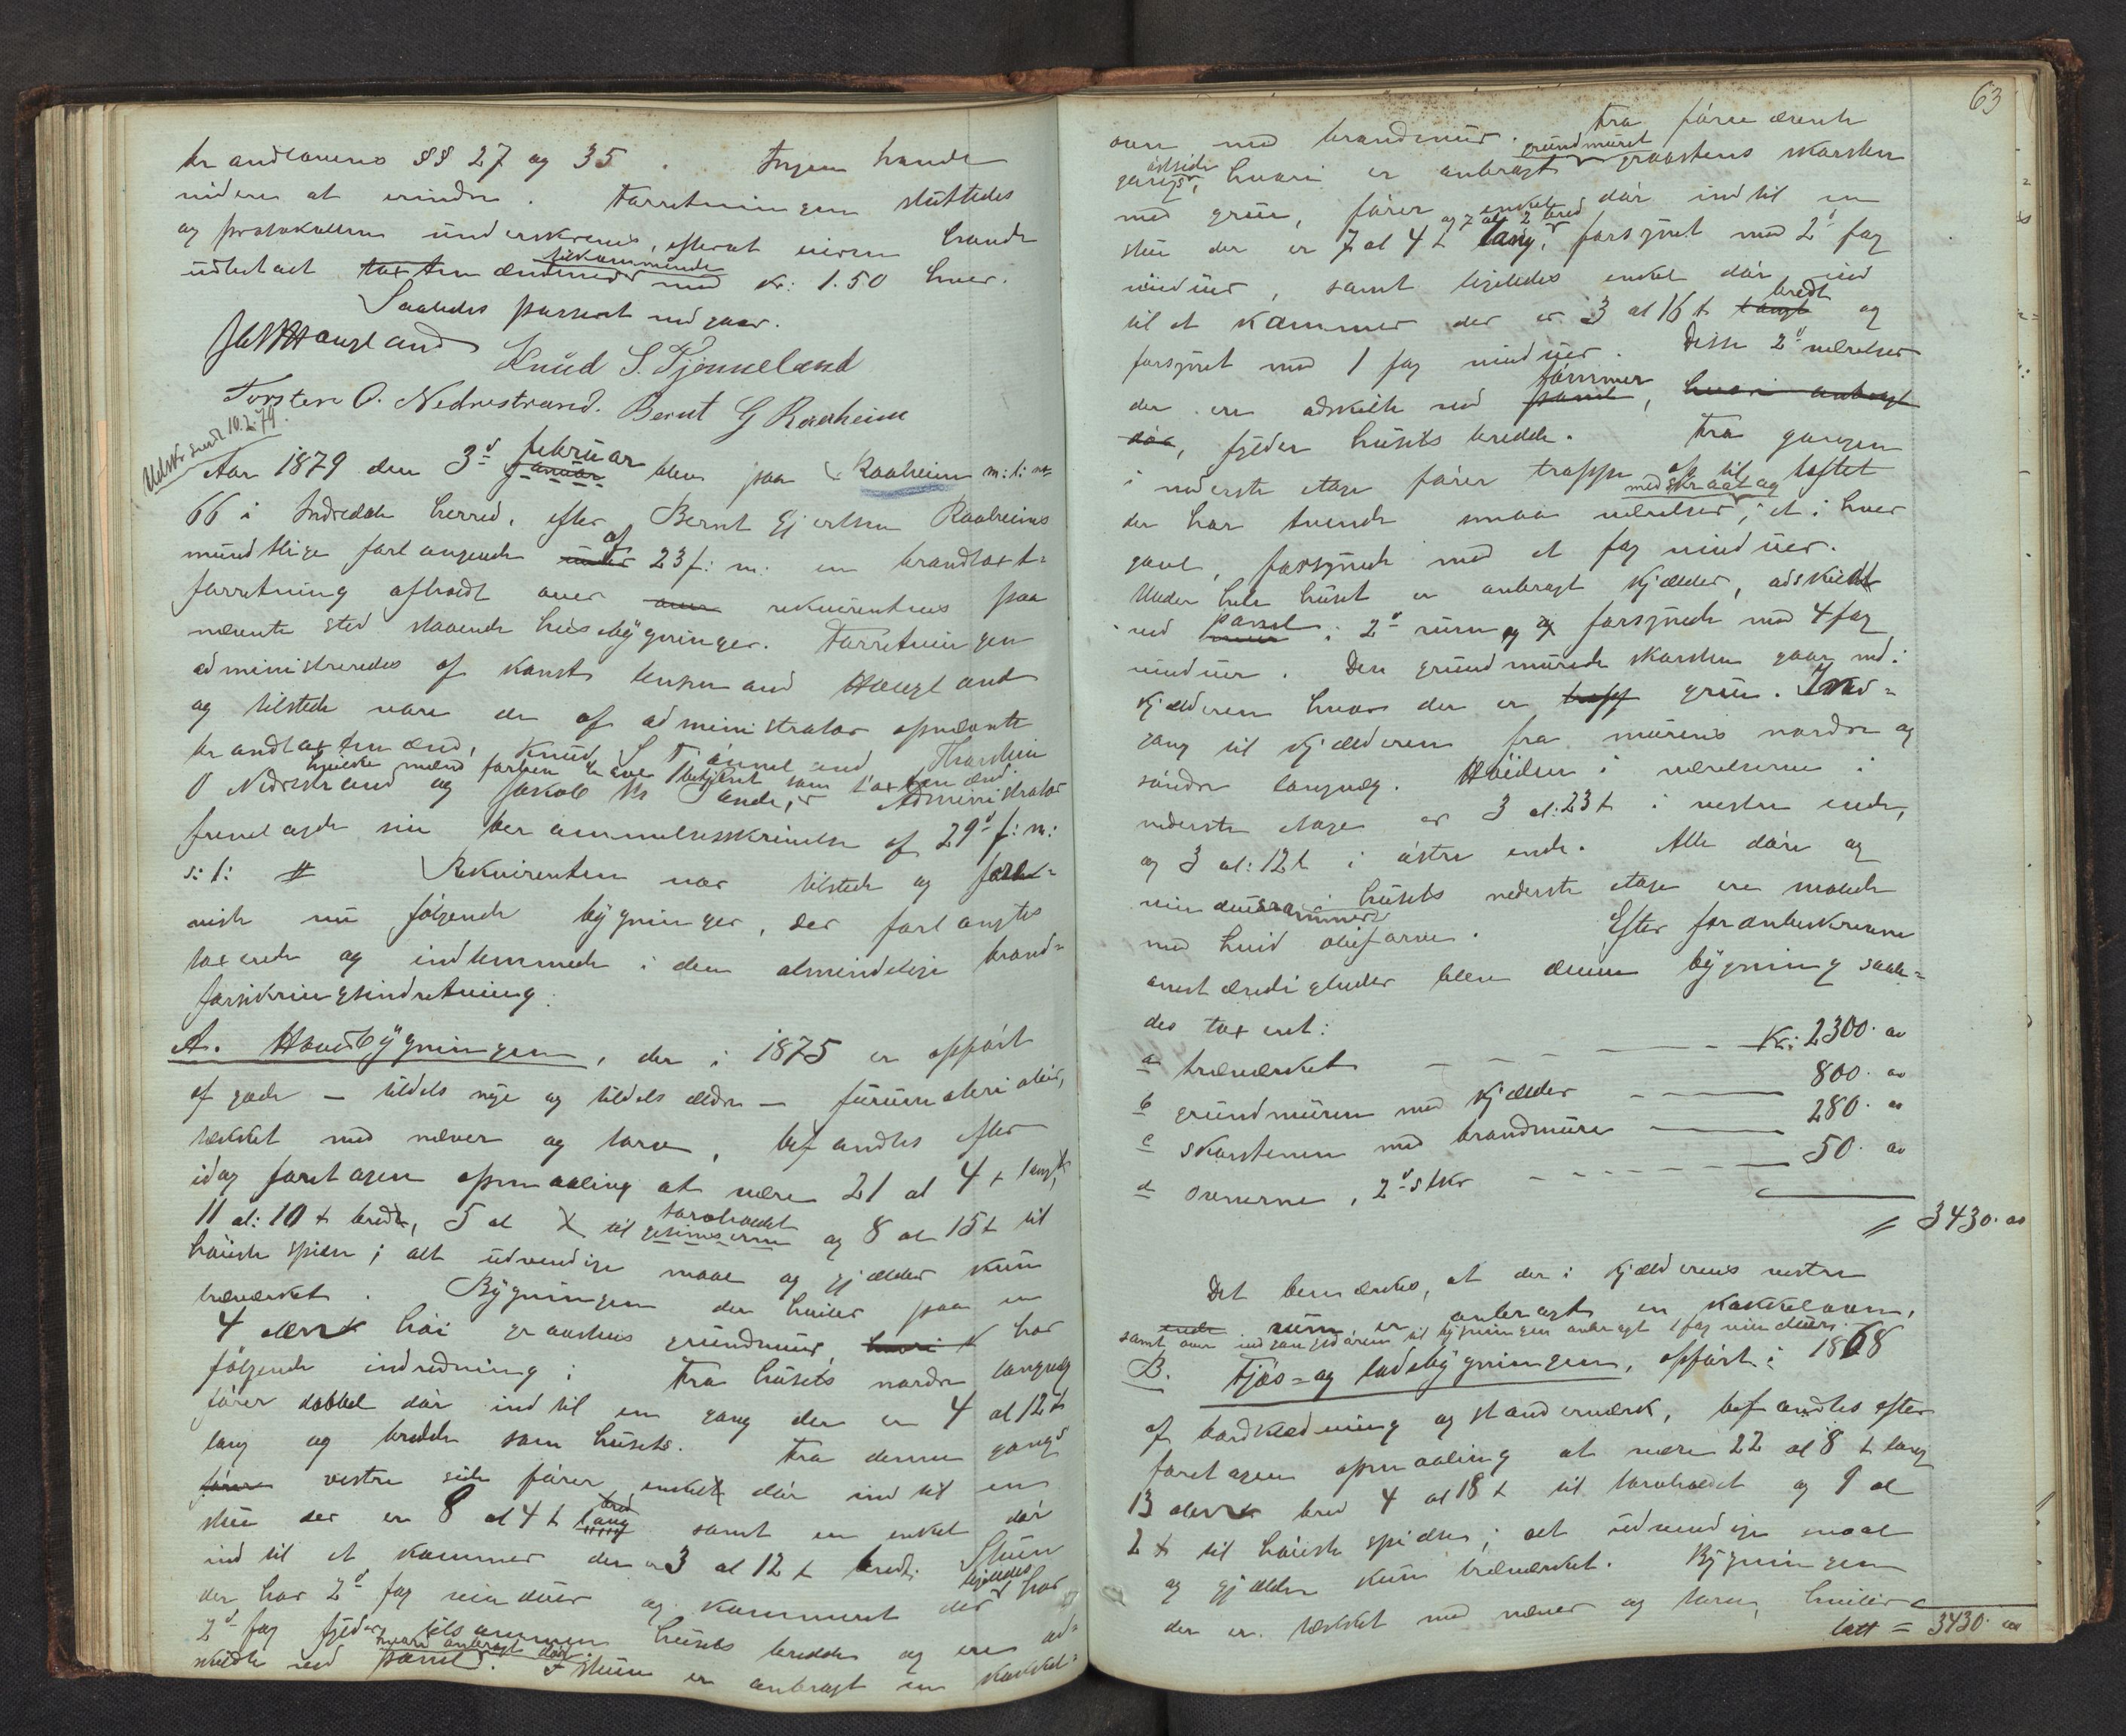 brandlovens §§ 27 og 35. Ingen havde
videre at erindre. Forretningen sluttedes
og protokollen underskrevet, efterat eieren havde
udbetalt taxtmændene tilkommende med kr: 1.50 hver.
Saaledes passeret vedgaar.
Haugland Knud S. Tjønneland
Torsten O. Nedrestrand. Bernt G Raaheim
Udskr sendt 10.2.79.
Aar 1879 den 3d februar januar blev paa Raaheim m: l: no
66 i Indredale herred, efter Bernt Gjertsen Raaheims
mundtlige forlangende under af 23 f: m: en brandtaxt=
forretning afholdt over over rekvirentens paa
nævnte sted staaende husebygninger. Forretningen
administreredes af konst lensmand Haugland
og tilstede vare de af administrator opnævnte
brandtaxtmænd, Knud S Tjønneland Thorstein
O Nedrestrand og Jakob Sande, Administrator
hvilke mænd forhen have betjent som taxtmænd.
fremlagde sin berammelsesskrivelse af 29d f: m:
s: l: # Rekvirenten var tilstede og fore=
viste nu følgende bygninger, der forlangtes
taxerede og indlemmede i den almindelige brand=
forsikringsindretning:
A. Hovedbygningen, der i 1875 er opført
af gode – tildels nye og tildels ældre – furumaterialier,
tækket med næver og torv, befandtes efter
idag foretagen opmaaling at være 21 al 4 t langt,
11 al: 10 t bredt, 5 al til gesimserne torvholdet og 8 al 15 t til
høieste spidse; alt udvendige maal og gjælder kun
træværket. Bygningen der hviler paa en
4 alen høi graastens grundmur, hvori har
følgende indredning: Fra husets nordre langvæg
fører dobbel dør ind til en gang der er 4 al 12 t
lang og bredde som husets. Fra denne gangs
fører vestre side fører enkelt dør ind til en
stue der er 8 al 4 t lang bred samt en enkel dør
ind til et kammer der er 3 al 12 t bredt. Stuen
der har 2d fag vinduer og kammeret der ligeledes har
2d fag fylder tilsammen husets bredde og ere ad=
skilte ved panel hvori anbragt dør. I stuen er anbragt en kakkel=
63
ovn med brandmur. Fra førnævnte
gangs østside, hvori er anbragt grundmuret graastens skorsten
med grue, fører enkel dør ind til en
stue der er 7 al 4 t lang og 7 al 2 bred, forsynet med 2d fag
vinduer, samt ligeledes enkel dør ind
til et kammer der er 3 al 16 t langt bredt og
forsynet med 1 fag vinduer. Disse 2d værelser
der ere adskilte ved panel tømmer, hvori anbragt
dør, fylder husets bredde. Fra gangen
i nederste etage fører trappe op til loftet
der har tvende smaa værelser med skraatag, et i hver
gavl, forsynede med et fag vinduer.
Under hele huset er anbragt kjælder, adskildt
ved panel i 2d rum og forsynede med 4 fag
vinduer. Den grundmurede skorsten gaar ned i
kjælderen hvor der er grue. Ned=
gang til kjælderen fra murens nordre og
søndre langvæg. Høiden i værelserne i
nederste etage er 3 al: 23 t i vestre ende,
og 3 al: 12 t i østre ende. Alle døre og
vinduerammer i husets nederste etage ere malede
med hvid oliefarve. Efter foranbeskrevne
omstændigheder blev denne bygning saale=
des taxeret:
a træværket – – – – Kr: 2300. oo
b grundmuren med kjælder – – – 800. oo
c skorstenen med brandmure – – 280. oo
d ovnerne, 2d stkr – – – – 50. oo
= 3430. oo
Det bemærkes, at der i kjælderens vestre
ende rum er anbragt en kakkelovn,
samt over indgangsdøren til bygningen anbragt 1 fag vinduer.
B. Fjøs= og ladebygningen, opført i 1868
af bordklædning og standerværk, befandtes efter
foretagen opmaaling at være 22 al 8 t lang
13 alen bred 4 al 18 t til torvholdet og 9 al
2 t til høieste spidse; alt udvendige maal
og gjælder kun træværket. Bygningen
der er tækket med næver og torv, hviler
latt = 3430. oo